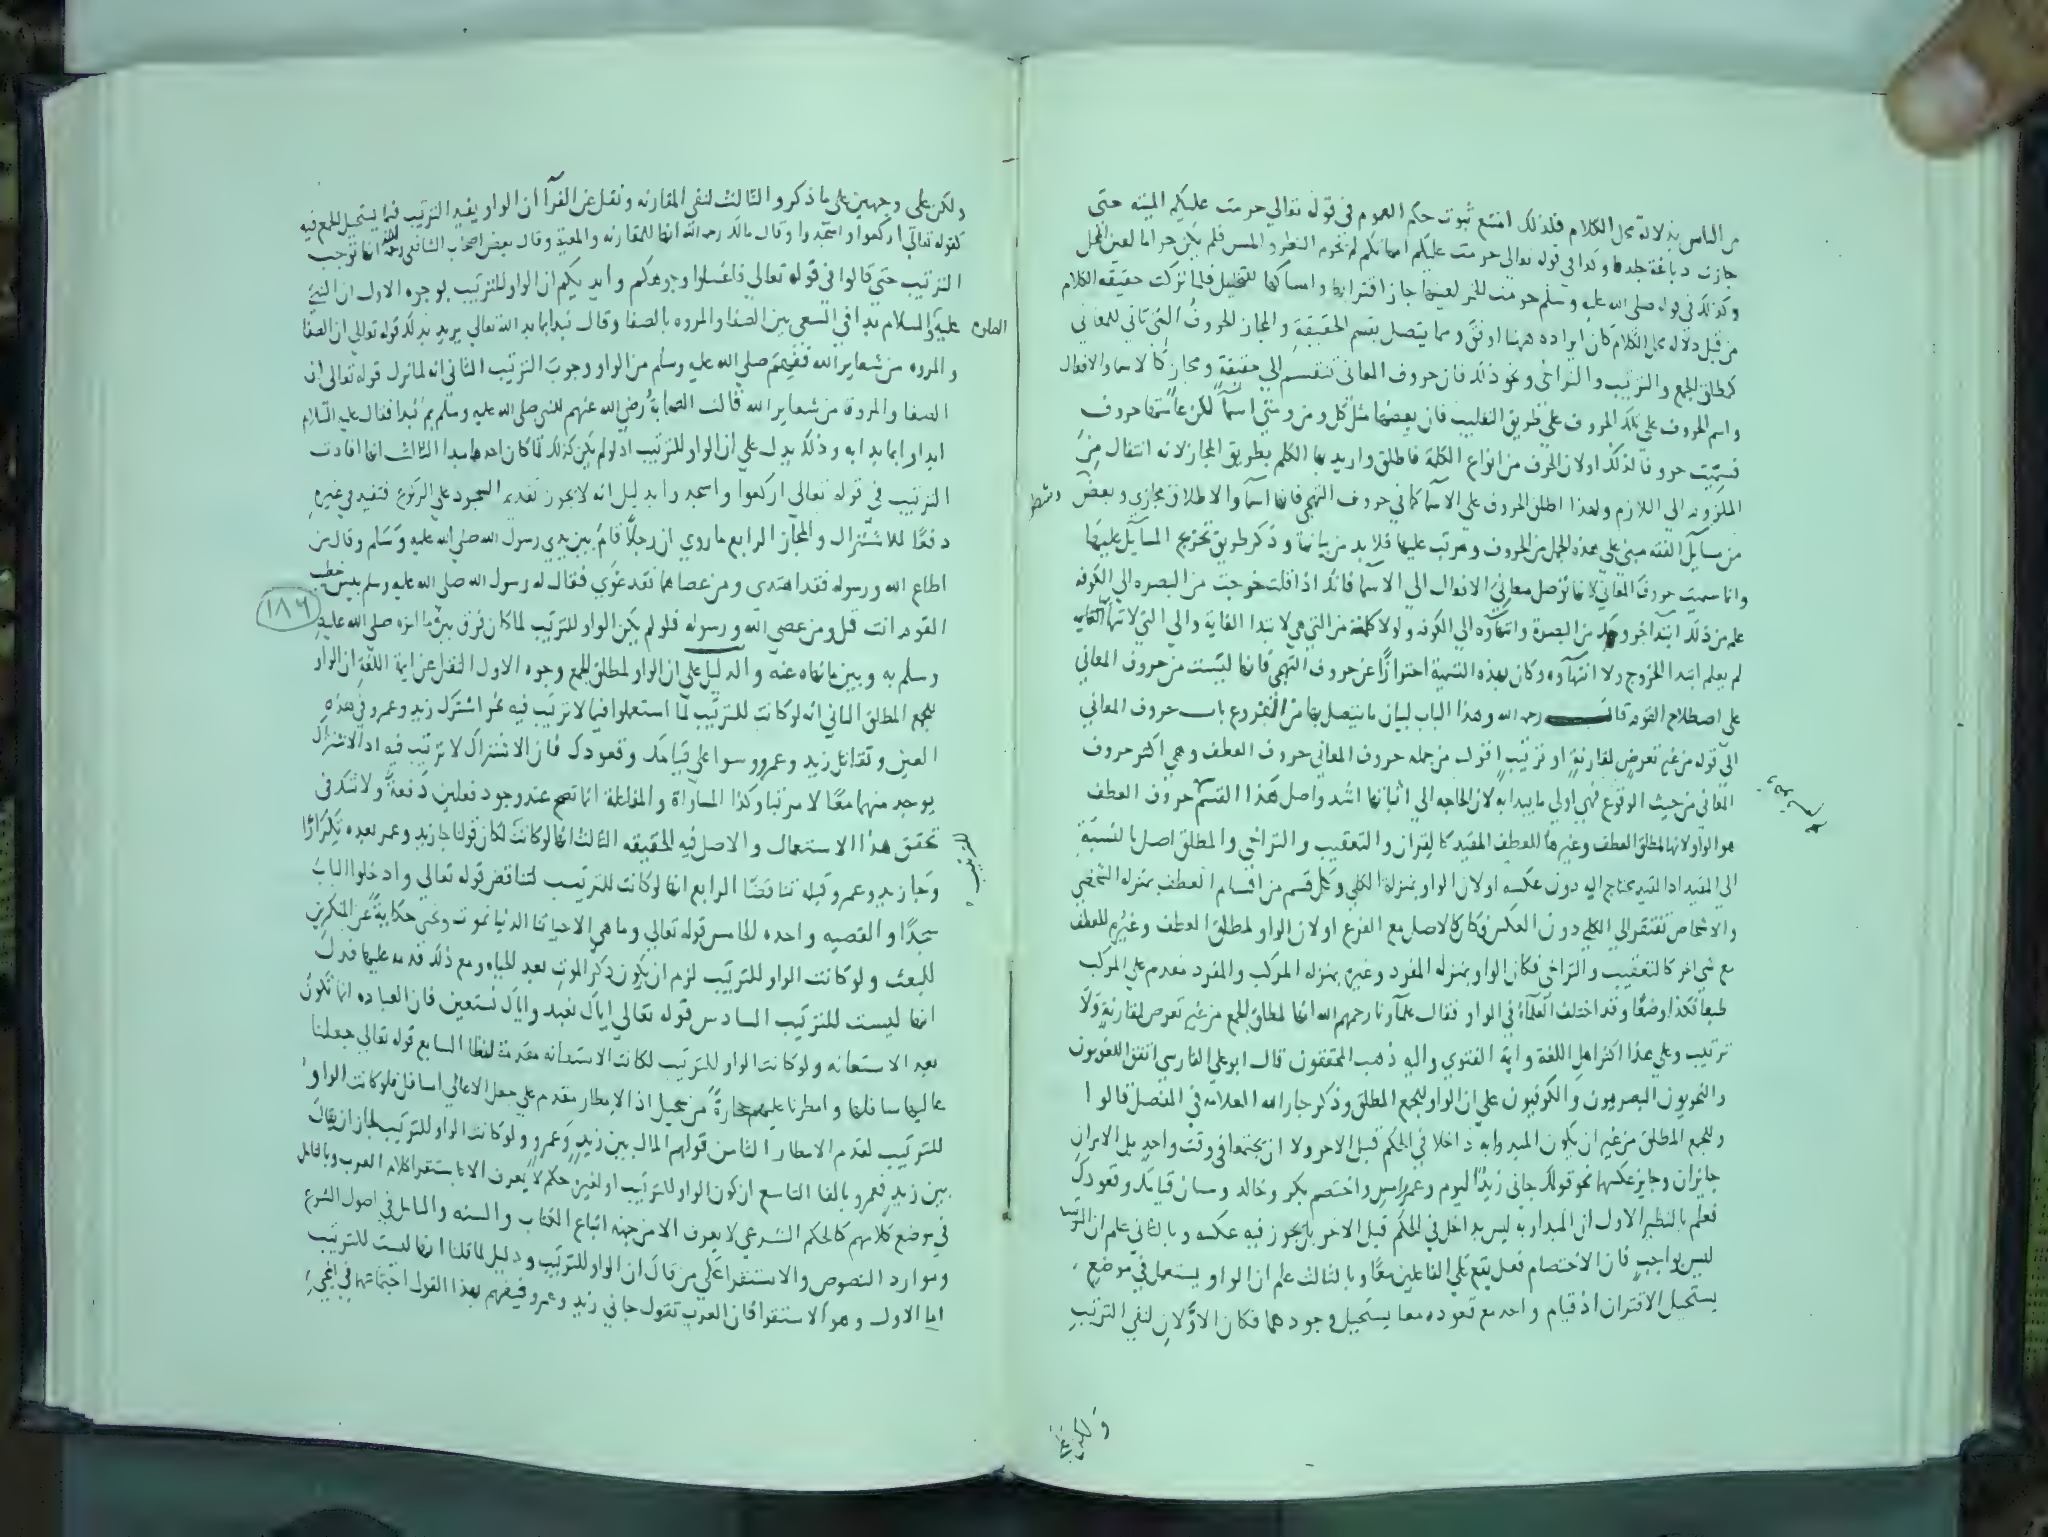 من الناس بدلالة محل الكلام فلذلك امتنع ثبوت حكم العموم في قوله تعالى حرمت عليكم الميته حتى
جازت دباغة جلدها وكذا في قوله تعالى حرمت عليكم امهاتكم لم يحرم النظر والمس فلم يكن حراما لعين المحل
وكذلك في قوله صلى الله عليه وسلم حرمت الخمر لعينها جاز اقترابها وامساكها للتخليل فلما تركت حقيقه الكلام
من قبل دلاله محل الكلام كان ايراده ههنا اوفق ومما يتصل بقسم الحقيقة والمجاز الحروف التي تاتي للمعاني
كمطلق الجمع والترتيب والتراخي ونحو ذلك فان حروف المعاني تنقسم الي حقيقة ومجاز كالاسما والافعال
واسم الحروف على تلك الحروف على طريق التغليب فان بعضها مثل كل ومن ومتى اسما لكن عامتها حروف
فسميت حروفا لذلك او لان الحرف من انواع الكلمة فاطلق واريد بها الكلم بطريق المجاز لانه انتقال من
الملزوم الي اللازم ولهذا اطلق الحروف على الاسما كما في حروف التهجي فانها اسما والاطلاق مجازي وبعض
وشطر
من مسايل الفقه مبنى على هذه الجمل من الحروف ومرتب عليها فلا بد من بيانها وذكر طريق تخريج المسايل عليها
وانما سميت حروف المعاني لانها توصل معاني الافعال الى الاسما فانك اذا قلت خرجت من البصره الي الكوفه
علم من ذلك ابتدا خروجك من البصرة وانتهاوه الي الكوفه ولولا كلمة من التي هي لابتدا الغاية والي التي لانتها الغايه
لم يعلم ابتدا الخروج ولا انتهاوه وكان بهذه التسمية احترازا عن حروف التهجي فانها ليست من حروف المعاني
على اصطلاح القوم قال رحمه الله وهذا الباب لبيان ما يتصل بها من الفروع باب حروف المعاني
الى قوله من غير تعرض لمقارنة او ترتيب اقول من جمله حروف المعاني حروف العطف وهي اكثر حروف
المعاني من حيث الوقوع فهي اولي ما يبدا به لان الحاجه الي اثباتها اشد واصل هذا القسم حروف العطف
هو الواو لانها لمطلق العطف وغيرها للعطف المقيد كالقران والتعقيب والتراخي والمطلق اصل بالنسبة
الي المقيد اذ المقيد يحتاج اليه دون عكسه او لان الواو بمنزله الكلي وكل قسم من اقسام العطف بمنزله الشخص
والاشخاص تفتقر الي الكلي دون العكس فكان كالاصل مع الفرع او لان الواو لمطلق العطف وغيره للعطف
مع شي اخر كالتعقيب والتراخي فكان الواو بمنزله المفرد وغيره بمنزله المركب والمفرد مقدم علي المركب
طبعا فكذا وضعا وقد اختلف العلماء في الواو فقال علماونا رحمهم الله انها لمطلق الجمع من غير تعرض لمقارنة ولا
ترتيب وعلي هذا اكثر اهل اللغة وايمة الفتوي واليه ذهب المحققون قال ابو علي الفارسي اتفق اللغويون
والنحويون البصريون والكوفيون علي ان الواو للجمع المطلق وذكر جار الله العلامه في المفصل قالوا
وللجمع المطلق من غير ان يكون المبدوابه داخلا في الحكم قبل الاخر ولا ان يجتمعا في وقت واحد بل الامران
جايزان وجايز عكسهما نحو قولك جاني زيد اليوم وعمر امس واختصم بكر وخالد وسيان قيامك وقعودك
فعلم بالنظير الاول ان المبدو به ليس بداخل في الحكم قبل الاخر بل يجوز فيه عكسه وبالثاني علم ان الترتيب
ليس بواجب فان الاختصام فعل يقع على الفاعلين معا وبالثالث علم ان الواو يستعمل في موضع
يستحيل الاقتران اذ قيام واحد مع قعوده معا يستحيل وجودهما فكان الاولان لنفي الترتيب
ولكن على
ولكن على وجهين على ما ذكر والثالث لنفي المقارنه ونقل عن الفرا ان الواو يفيد الترتيب فيما يستحيل الجمع فيه
كقوله تعالى اركعوا واسجدوا وقال مالك رحمه الله انها للمقارنه والمعية وقال بعض اصحاب الشافعي رحمه الله انها توجب
الترتيب حتى قالوا في قوله تعالى فاغسلوا وجوهكم وايديكم ان الواو للترتيب لوجوه الاول ان النبي
عليه الصلوه والسلام بدا في السعي بين الصفا والمروه بالصفا وقال نبدا بما بدا الله تعالى يريد بذلك قوله تعالي ان الصفا
والمروه من شعاير الله ففهم صلى الله عليه وسلم من الواو وجوب الترتيب الثاني انه لما نزل قوله تعالى ان
الصفا والمروة من شعاير الله قالت الصحابة رضي الله عنهم للنبي صلى الله عليه وسلم بم نبدا فقال عليه السلام
ابداوا بما بدا به وذلك يدل علي ان الواو للترتيب اذ لو لم يكن كذلك لما كان احدهما مبدا الثالث انها افادت
الترتيب في قوله تعالى اركعوا واسجدوا بدليل انه لا يجوز تقديم السجود على الركوع فتفيد في غيره
دفعا للاشتراك والمجاز الرابع ما روي ان رجلا قام بين يدي رسول الله صلى الله عليه وسلم وقال من
اطاع الله ورسوله فقد اهتدى ومن عصاهما فقد غوي فقال له رسول الله صلى الله عليه وسلم بيس خطيب
القوم انت قل ومن عصى الله ورسوله فلو لم يكن الواو للترتيب لما كان فرق بين ما امره صلى الله عليه
١٨٦
وسلم به وبين ما نهاه عنه والدليل على ان الواو لمطلق الجمع وجوه الاول النقل عن ايمة اللغة ان الواو
للجمع المطلق الثاني انه لو كانت للترتيب لما استعملوا فيما لا ترتيب فيه نحو اشترك زيد وعمرو في هذه
العين وتقاتل زيد وعمرو وسوا علي قيامك وقعودك فان الاشتراك لا ترتيب فيه اذ الاشتراك
يوجد منهما معا لا مرتبا وكذا المساواة والمقاتلة انما تصح عند وجود فعلين دفعة ولا شك في
تحقق هذا الاستعمال والاصل فيه الحقيقه الثالث انها لو كانت للترتيب لكان قولنا جا زيد وعمر بعده تكرارا
وجا زيد وعمرو قبله تناقضا الرابع انها لو كانت للترتيب لتناقض قوله تعالي وادخلوا الباب
سجدا والقصه واحده الخامس قوله تعالي وما هي الا حياتنا الدنيا نموت ونحيى حكاية عن المنكرين
للبعث ولو كانت الواو للترتيب لزم ان يكون ذكر الموت بعد الحياه ومع ذلك قدمه عليها فدل
انها ليست للترتيب السادس قوله تعالي اياك نعبد واياك نستعين فان العباده انما تكون
بعد الاستعانه ولو كانت الواو للترتيب لكانت الاستعانه مقدمة لفظا السابع قوله تعالي جعلنا
عاليها سافلها وامطرنا عليهم حجارة من سجيل اذ الامطار مقدم علي جعل الاعالي اسافل فلو كانت الواو
للترتيب لقدم الامطار الثامن قولهم المال بين زيد وعمرو ولو كانت الواو للترتيب لجاز ان يقال
بين زيد فعمرو بالفا التاسع ان كون الواو للترتيب او لغيره حكم لا يعرف الا باستقرا كلام العرب وبالتامل
في موضع كلامهم كالحكم الشرعي لا يعرف الا من جهة اتباع الكتاب والسنه والتامل في اصول الشرع
وموارد النصوص والاستقرا علي من قال ان الواو للترتيب ودليل لما قلنا انها ليست للترتيب
اما الاول وهو الاستقرا فان العرب تقول جاني زيد وعمرو فيفهم بهذا القول اجتماعهما في المجيء